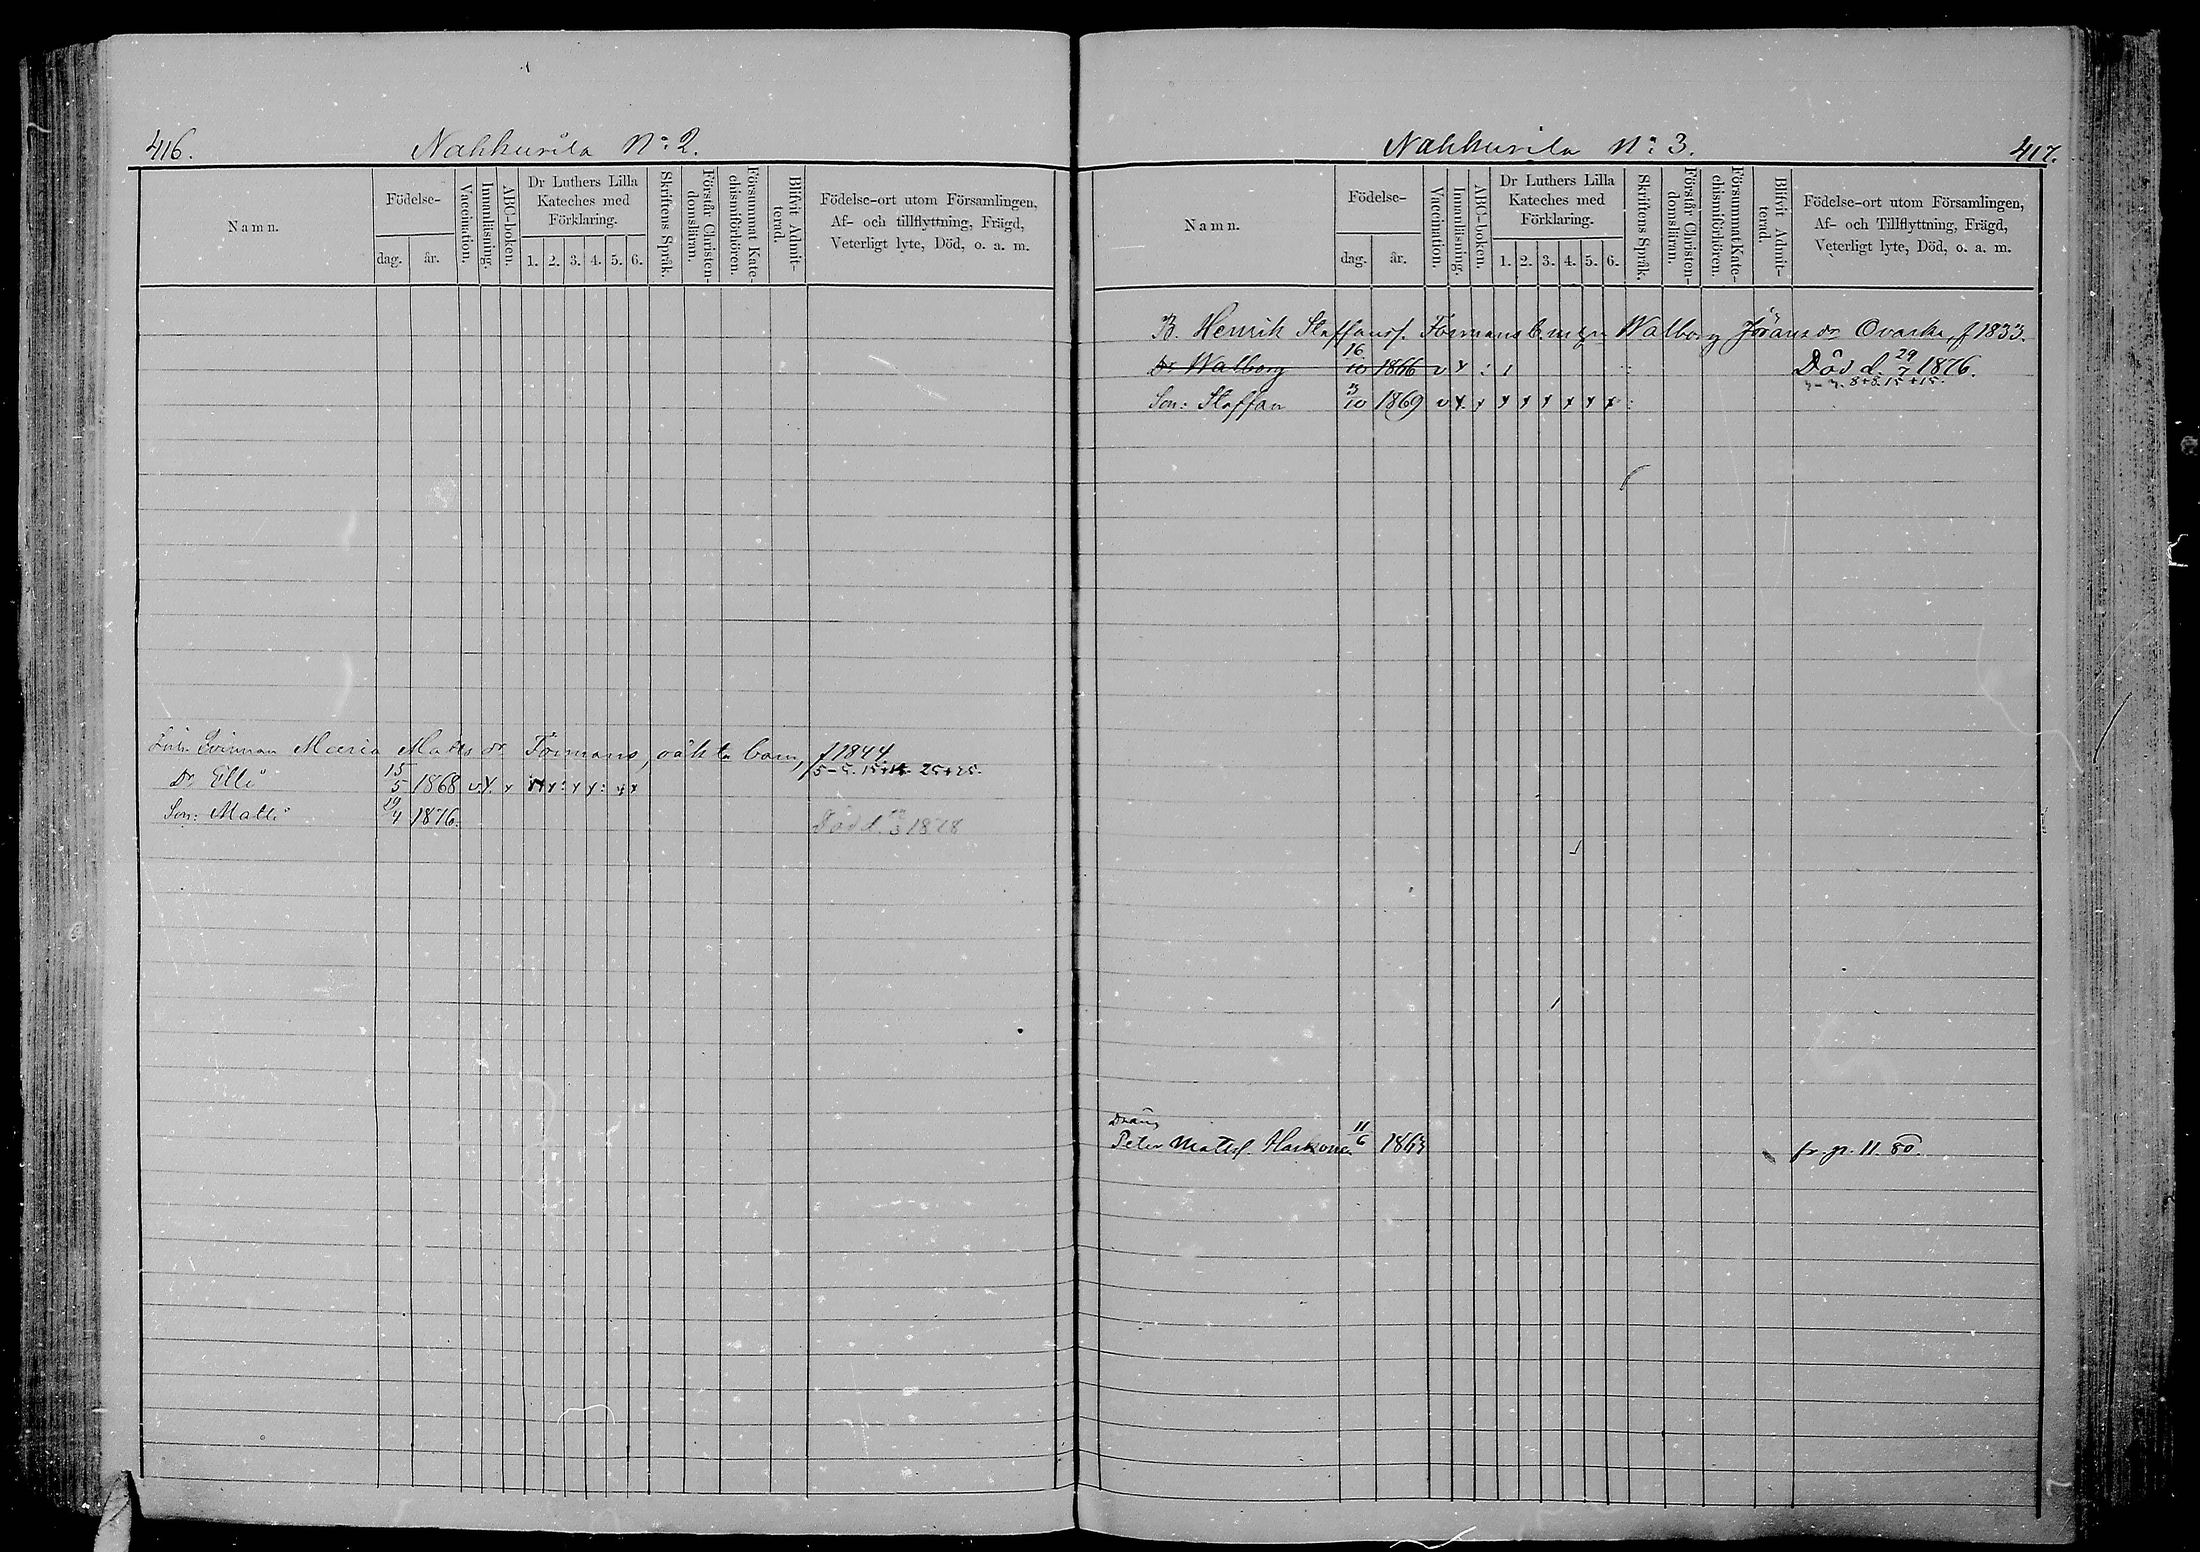 416.
Nahkurila No: 2.
Namn.
Födelse-
dag.
år.
Vaccination.
Innanläsning.
ABC-boken.
Dr Luthers Lilla
Kateches med
Förklaring.
1. 2. 3. 4. 5. 6.
Skriftens Språk.
Förstår Christen-
domsläran.
Försummat Kate-
chismiförhören.
Blifvit Admit-
terad.
Födelse-ort utom Församlingen,
Af- och tillflyttning, Frägd,
Veterligt lyte, Död, o. a. m.
Qvinnan Maria Mats dr Toimans, oäkta barn, f 1844.
5-5. 15+15. 25+25.
Dr Elli 15/5 1868 v. x. x x x : x x : x x
Son: Matti 19/4 1876.
Död d. 1878
Nahkurila No: 3.
417.
Namn.
Födelse-
dag.
år.
Vaccination.
Innanläsning.
ABC-boken.
Dr Luthers Lilla
Kateches med
Förklaring.
1. 2. 3. 4. 5. 6.
Skriftens Språk.
Förstår Christen-
domsläran.
Försummat Kate-
chismiförhören.
Blifvit Admit-
terad.
Födelse-ort utom Församlingen,
Af- och Tillflyttning, Frägd,
Veterligt lyte, Död, o. a. m.
B. Henrik Staffanss. Toimans b. m. Walborg Jöransdr Ovaska, f 1833.
Dr Walborg 16/10 1866 v x : 1 Död d. 29/7 1876.
8+8. 15+15.
Son: Staffan 3/10 1869 v x. x x x x x x x :
Dräng
Peter Matts. Haikonen 11/6 1863 fr. p. 11. 80.